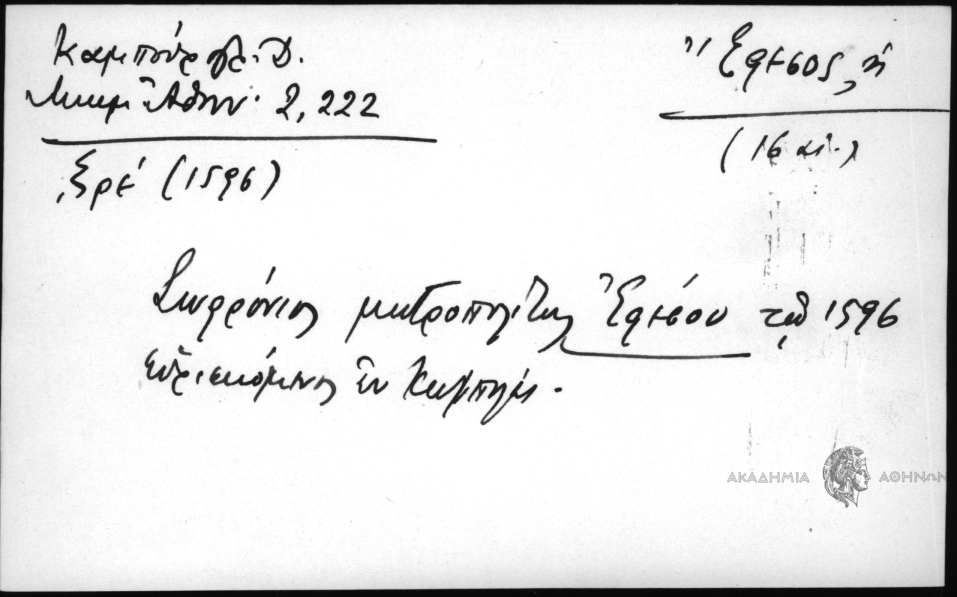 Καμπούρογλ. Δ.
Μνημ. Ἀθην. 2, 222
Ἔφεσος, ἡ
(16 αἰ.)
ἔγρ. (1596)
Σωφρόνιος μητροπολίτης Ἐφέσου τῷ 1596
εὑρισκόμενος ἐν Κων/πόλει.
ΑΚΑΔΗΜΙΑ ΑΘΗΝΩΝ